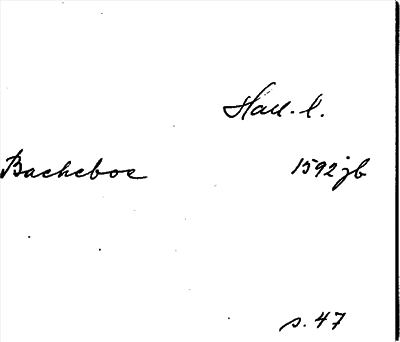 Hall. l.
Backeboe
1592 jb
s. 47